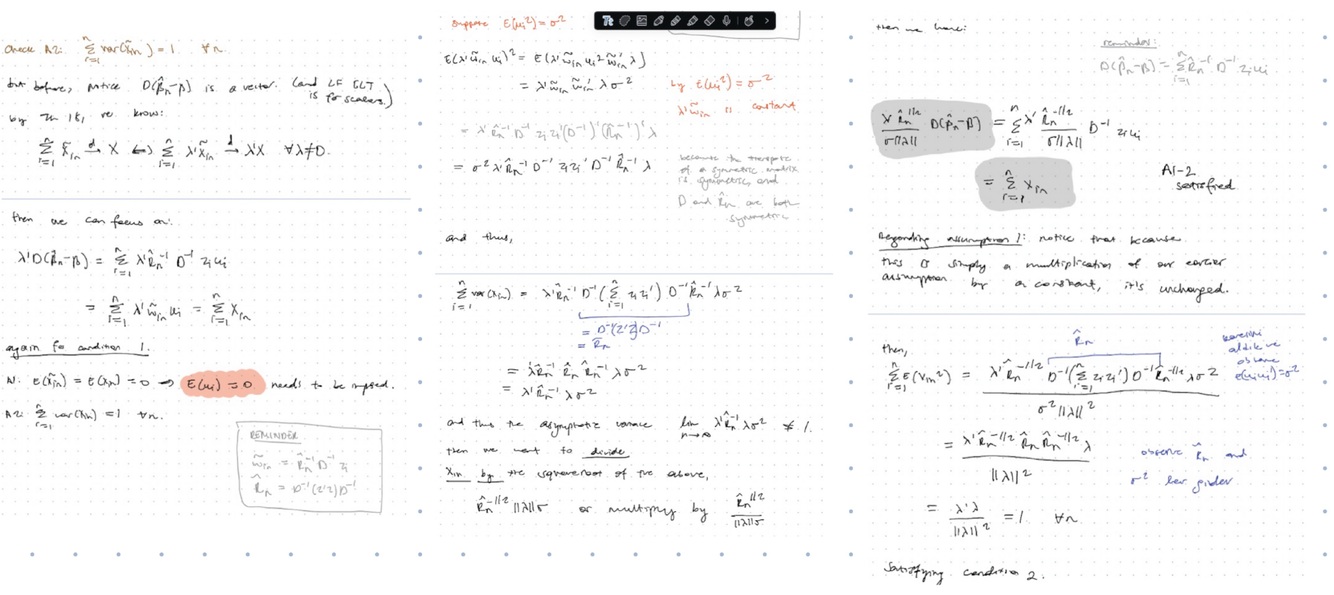 check A2: Σ_{i=1}^{n} var(x̃_in) = 1 ∀n
but before, notice D(β̂_n-β) is a vector. (and LF CLT
is for scalars.)
by Th 1K, we know:
Σ_{i=1}^{n} x̃_in →^d X ⟺ Σ_{i=1}^{n} λ'x̃_in →^d λ'X ∀λ≠0.
then we can focus on:
λ'D(β̂_n-β) = Σ_{i=1}^{n} λ'R̂_n^{-1} D^{-1} z_i u_i
= Σ_{i=1}^{n} λ'w̃_in u_i = Σ_{i=1}^{n} x_in
again for condition 1.
A1. E(x̃_in) = E(x_in) = 0 → E(u_i) = 0 needs to be imposed.
A2: Σ_{i=1}^{n} var(x_in) = 1 ∀n.
REMINDER
w̃_in = R̂_n^{-1} D^{-1} z_i
R̂_n = D^{-1}(z'z)D^{-1}
suppose E(u_i²) = σ²
E(λ'w̃_in u_i)² = E(λ'w̃_in u_i² w̃_in' λ)
= λ'w̃_in w̃_in' λ σ²
by E(u_i²) = σ²
λ'w̃_in is constant
= λ'R̂_n^{-1} D^{-1} z_i z_i'(D^{-1})'(R̂_n^{-1})'λ
= σ² λ'R̂_n^{-1} D^{-1} z_i z_i' D^{-1} R̂_n^{-1} λ
because the transpose
of a symmetric matrix
is symmetric, and
D and R̂_n are both
symmetric
and thus,
Σ_{i=1}^{n} var(x_in) = λ'R̂_n^{-1} D^{-1}(Σ_{i=1}^{n} z_i z_i') D^{-1} R̂_n^{-1} λσ²
= D^{-1}(z'z)D^{-1}
= R̂_n
= λ'R̂_n^{-1} R̂_n R̂_n^{-1} λσ²
= λ'R̂_n^{-1} λσ²
and thus the asymptotic variance lim_{n→∞} λ'R̂_n^{-1} λσ² ≠ 1.
then we want to divide
x_in by the squareroot of the above,
R̂_n^{-1/2} ||λ||σ or multiply by R̂_n^{1/2} / ||λ||σ
then we have:
reminder:
D(β̂_n-β) = Σ_{i=1}^{n} R̂_n^{-1} D^{-1} z_i u_i
λ'R̂_n^{1/2} / σ||λ|| D(β̂_n-β) = Σ_{i=1}^{n} λ' R̂_n^{-1/2} / σ||λ|| D^{-1} z_i u_i
= Σ_{i=1}^{n} x_in
A1-2
satisfied
Regarding assumption 1: notice that because
this is simply a multiplication of our earlier
assumption by a constant, it's unchanged.
then,
R̂_n
Σ_{i=1}^{n} E(v_in²) = λ'R̂_n^{-1/2} D^{-1}(Σ_{i=1}^{n} z_i z_i') D^{-1} R̂_n^{-1/2} λσ² / σ²||λ||²
observe
E(u_i u_i) = σ²
= λ'R̂_n^{-1/2} R̂_n R̂_n^{-1/2} λ / ||λ||²
observe R̂_n and
σ²
= λ'λ / ||λ||² = 1 ∀n
Satisfying condition 2.